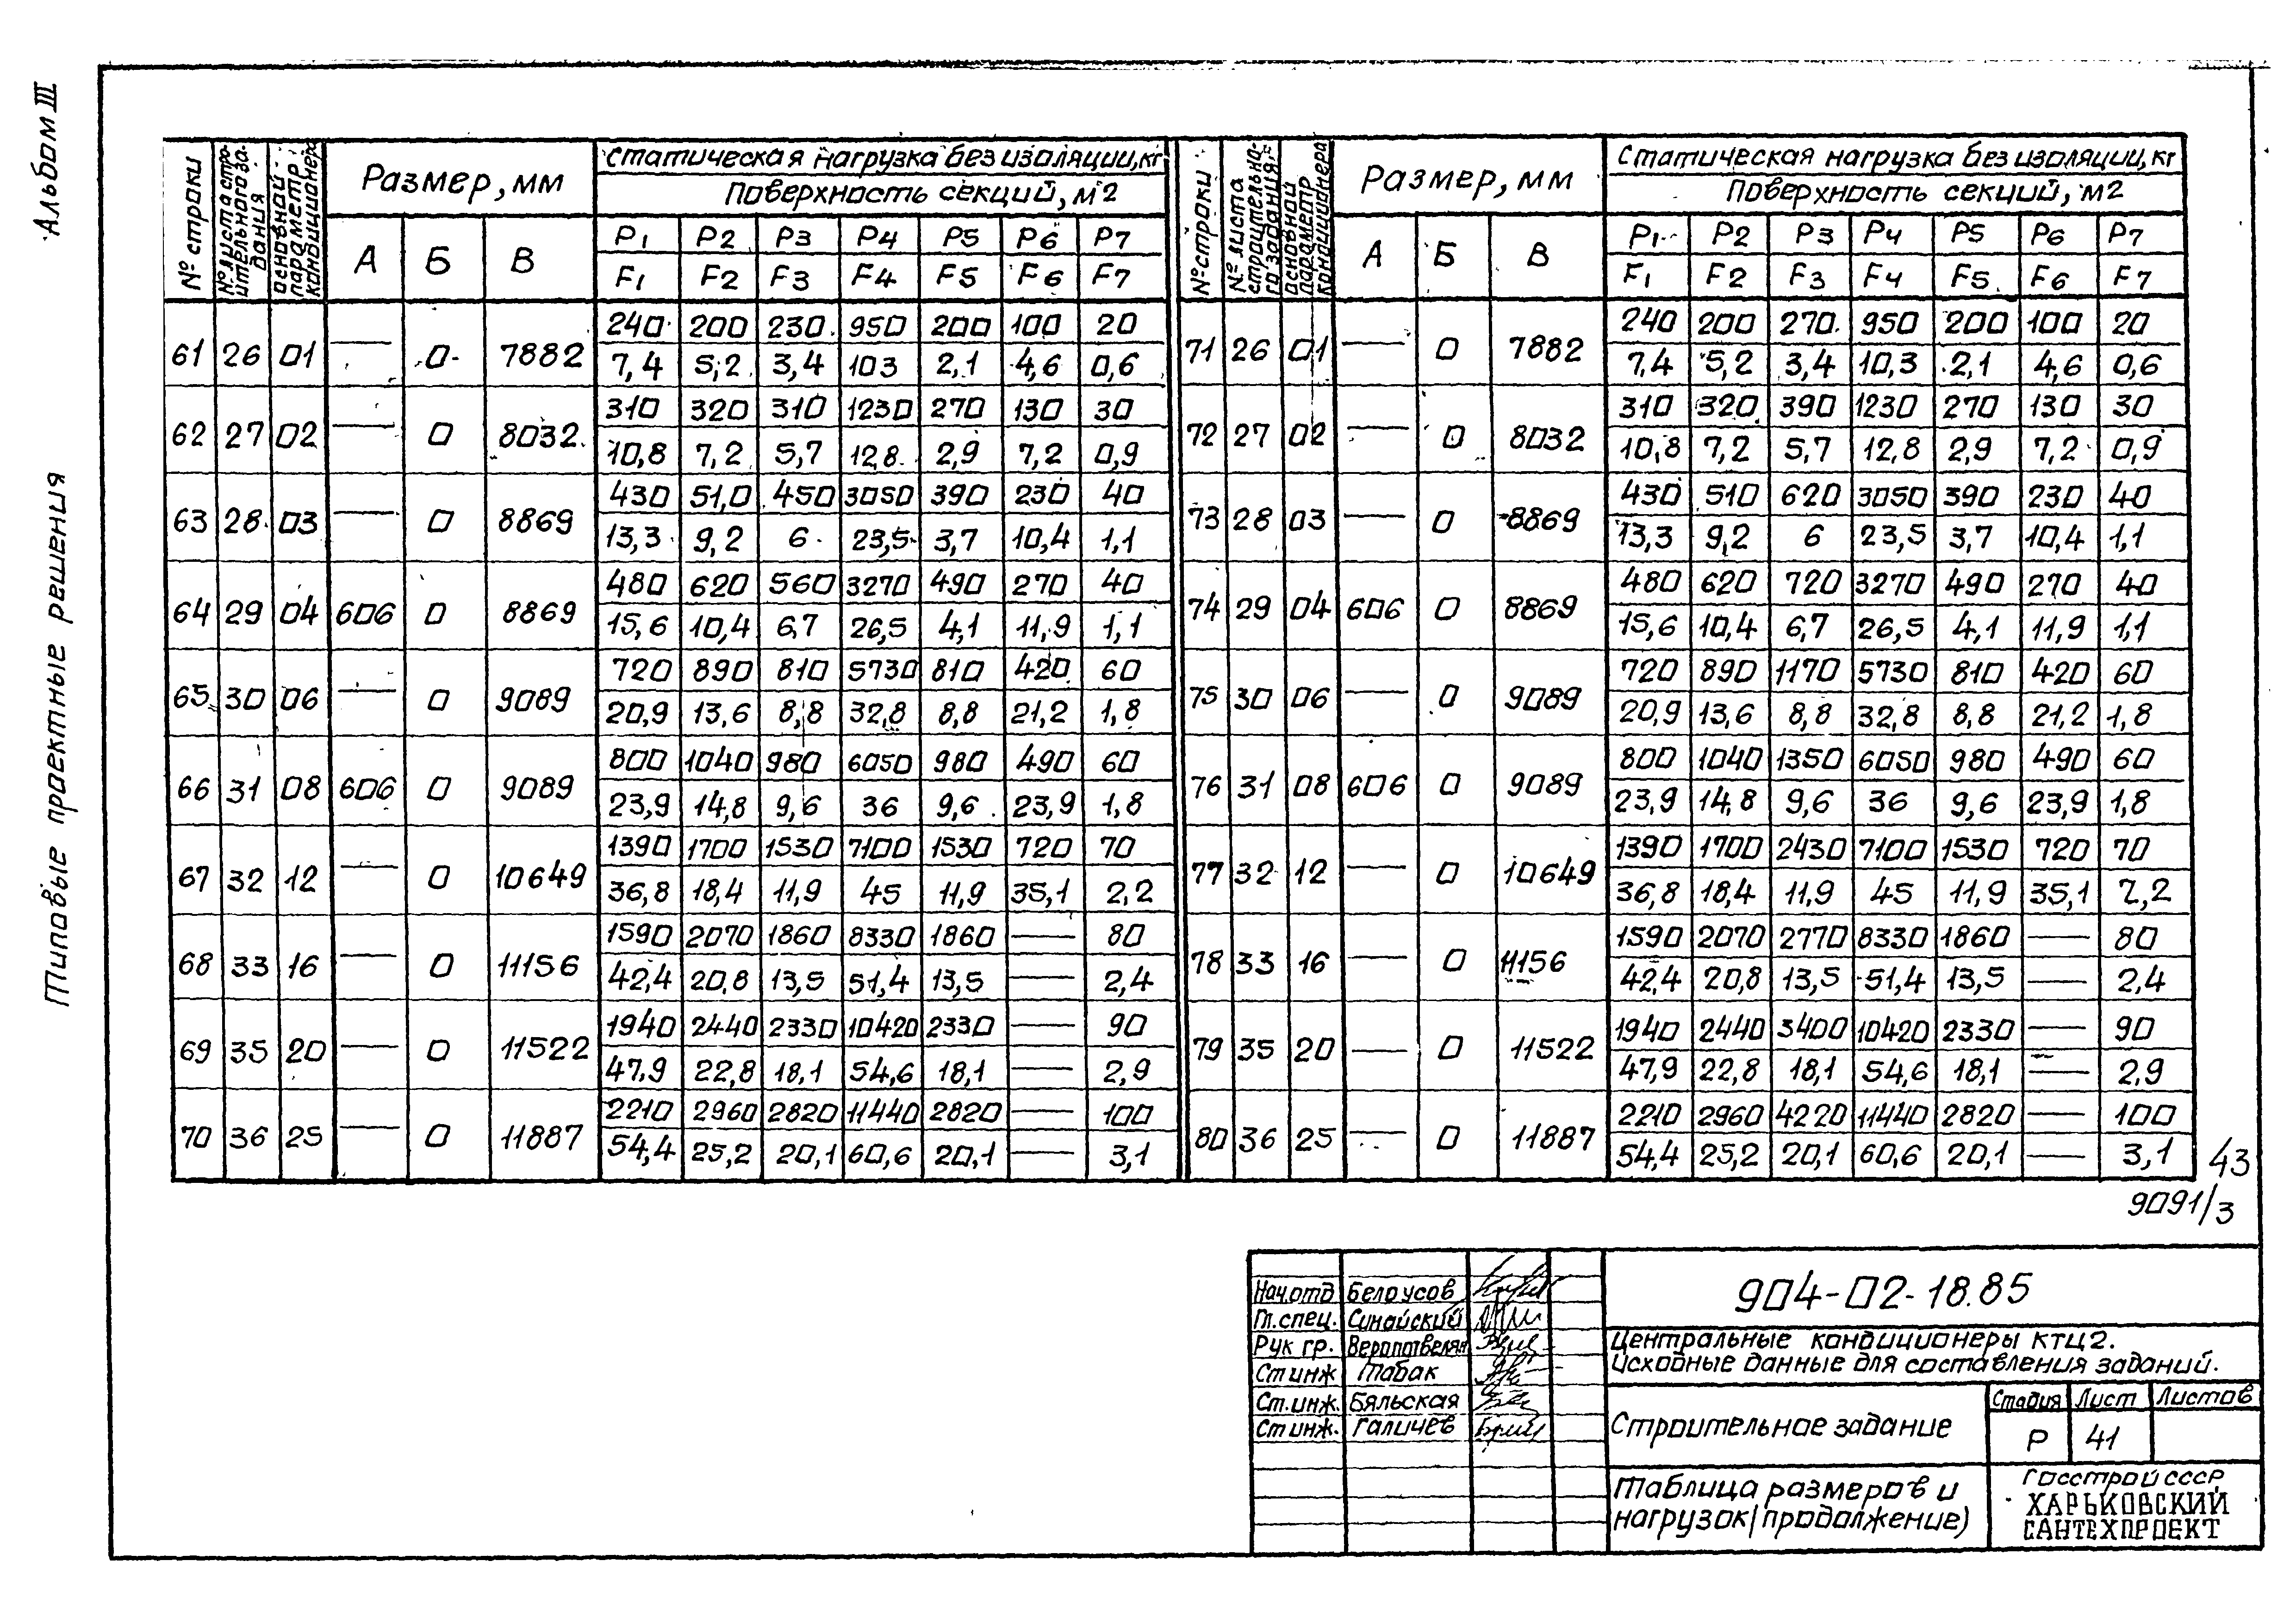 Альбом III
Типовые проектные решения
№ строки | № листа строительного задания | основной параметр кондиционера | Размер, мм | Статическая нагрузка без изоляции, кг
Поверхность секций, м2
А | Б | В | P1 | P2 | P3 | P4 | P5 | P6 | P7
F1 | F2 | F3 | F4 | F5 | F6 | F7
61 | 26 | 01 | — | 0 | 7882 | 240 | 200 | 230 | 950 | 200 | 100 | 20
7,4 | 5,2 | 3,4 | 103 | 2,1 | 4,6 | 0,6
62 | 27 | 02 | — | 0 | 8032 | 310 | 320 | 310 | 1230 | 270 | 130 | 30
10,8 | 7,2 | 5,7 | 12,8 | 2,9 | 7,2 | 0,9
63 | 28 | 03 | — | 0 | 8869 | 430 | 51,0 | 450 | 3050 | 390 | 230 | 40
13,3 | 9,2 | 6 | 23,5 | 3,7 | 10,4 | 1,1
64 | 29 | 04 | 606 | 0 | 8869 | 480 | 620 | 560 | 3270 | 490 | 270 | 40
15,6 | 10,4 | 6,7 | 26,5 | 4,1 | 11,9 | 1,1
65 | 30 | 06 | — | 0 | 9089 | 720 | 890 | 810 | 5730 | 810 | 420 | 60
20,9 | 13,6 | 8,8 | 32,8 | 8,8 | 21,2 | 1,8
66 | 31 | 08 | 606 | 0 | 9089 | 800 | 1040 | 980 | 6050 | 980 | 490 | 60
23,9 | 14,8 | 9,6 | 36 | 9,6 | 23,9 | 1,8
67 | 32 | 12 | — | 0 | 10649 | 1390 | 1700 | 1530 | 7100 | 1530 | 720 | 70
36,8 | 18,4 | 11,9 | 45 | 11,9 | 35,1 | 2,2
68 | 33 | 16 | — | 0 | 11156 | 1590 | 2070 | 1860 | 8330 | 1860 | — | 80
42,4 | 20,8 | 13,5 | 51,4 | 13,5 | — | 2,4
69 | 35 | 20 | — | 0 | 11522 | 1940 | 2440 | 2330 | 10420 | 2330 | — | 90
47,9 | 22,8 | 18,1 | 54,6 | 18,1 | — | 2,9
70 | 36 | 25 | — | 0 | 11887 | 2210 | 2960 | 2820 | 11440 | 2820 | — | 100
54,4 | 25,2 | 20,1 | 60,6 | 20,1 | — | 3,1
№ строки | № листа строительного задания | основной параметр кондиционера | Размер, мм | Статическая нагрузка без изоляции, кг
Поверхность секций, м2
А | Б | В | P1 | P2 | P3 | P4 | P5 | P6 | P7
F1 | F2 | F3 | F4 | F5 | F6 | F7
71 | 26 | 01 | — | 0 | 7882 | 240 | 200 | 270 | 950 | 200 | 100 | 20
7,4 | 5,2 | 3,4 | 10,3 | 2,1 | 4,6 | 0,6
72 | 27 | 02 | — | 0 | 8032 | 310 | 320 | 390 | 1230 | 270 | 130 | 30
10,8 | 7,2 | 5,7 | 12,8 | 2,9 | 7,2 | 0,9
73 | 28 | 03 | — | 0 | 8869 | 430 | 510 | 620 | 3050 | 390 | 230 | 40
13,3 | 9,2 | 6 | 23,5 | 3,7 | 10,4 | 1,1
74 | 29 | 04 | 606 | 0 | 8869 | 480 | 620 | 720 | 3270 | 490 | 270 | 40
15,6 | 10,4 | 6,7 | 26,5 | 4,1 | 11,9 | 1,1
75 | 30 | 06 | — | 0 | 9089 | 720 | 890 | 1170 | 5730 | 810 | 420 | 60
20,9 | 13,6 | 8,8 | 32,8 | 8,8 | 21,2 | 1,8
76 | 31 | 08 | 606 | 0 | 9089 | 800 | 1040 | 1350 | 6050 | 980 | 490 | 60
23,9 | 14,8 | 9,6 | 36 | 9,6 | 23,9 | 1,8
77 | 32 | 12 | — | 0 | 10649 | 1390 | 1700 | 2430 | 7100 | 1530 | 720 | 70
36,8 | 18,4 | 11,9 | 45 | 11,9 | 35,1 | 2,2
78 | 33 | 16 | — | 0 | 11156 | 1590 | 2070 | 2770 | 8330 | 1860 | — | 80
42,4 | 20,8 | 13,5 | 51,4 | 13,5 | — | 2,4
79 | 35 | 20 | — | 0 | 11522 | 1940 | 2440 | 3400 | 10420 | 2330 | — | 90
47,9 | 22,8 | 18,1 | 54,6 | 18,1 | — | 2,9
80 | 36 | 25 | — | 0 | 11887 | 2210 | 2960 | 4220 | 11440 | 2820 | — | 100
54,4 | 25,2 | 20,1 | 60,6 | 20,1 | — | 3,1
43
9091/3
Нач.отд | Белоусов
Гл.спец. | Синайский
Рук гр.
Ст инж | Табак
Ст.инж. | Бяльская
Ст инж. | Галичев
904-02-18.85
Центральные кондиционеры КТЦ2.
Исходные данные для составления заданий.
Строительное задание
Стадия | Лист | Листов
Р | 41
Таблица размеров и
нагрузок (продолжение)
Госстрой СССР
ХАРЬКОВСКИЙ
САНТЕХПРОЕКТ